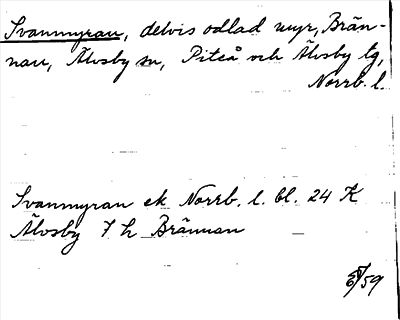 Svanmyran, delvis odlad myr, Brän-
nan, Älvsby sn, Piteå och Älvsby tg,
Norrb. l.
Svanmyran ek Norrb. l. bl. 24 K
Älvsby 7 h Brännan
/59